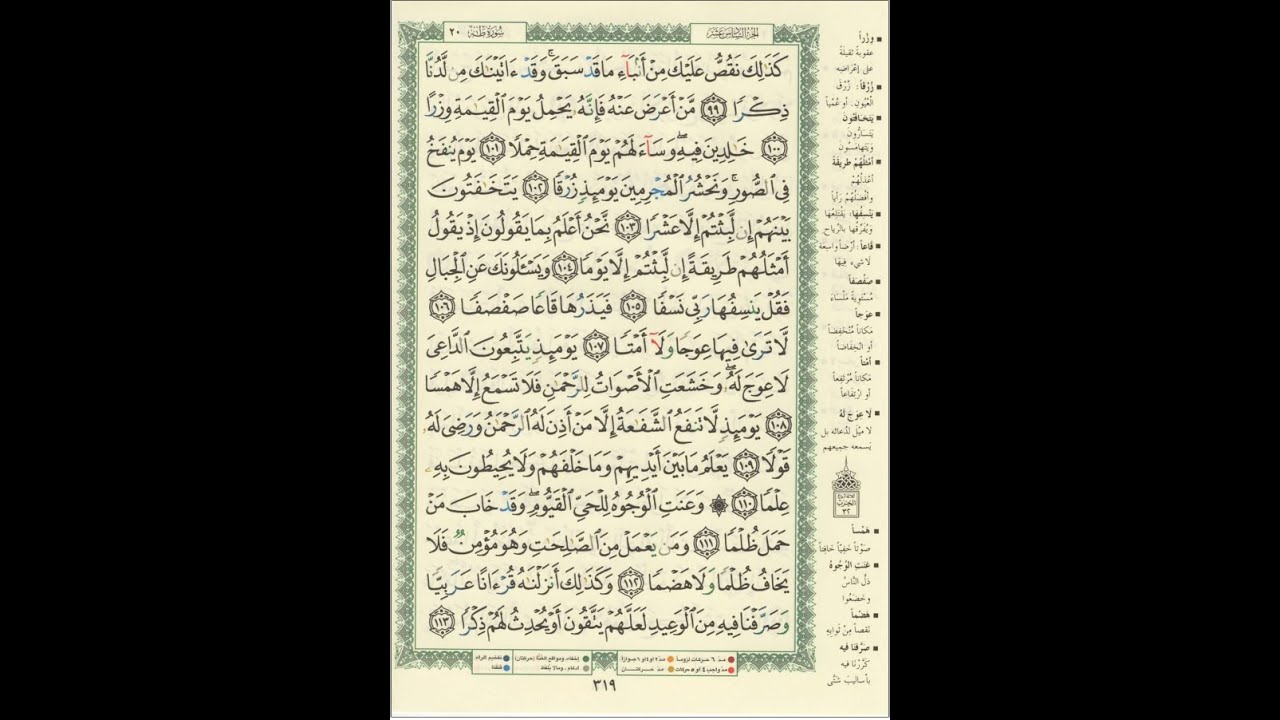 الجزء السادس عشر
سورة طه ٢٠
كَذَٰلِكَ نَقُصُّ عَلَيْكَ مِنْ أَنۢبَآءِ مَا قَدْ سَبَقَ ۚ وَقَدْ ءَاتَيْنَٰكَ مِن لَّدُنَّا
ذِكْرًا ﴿٩٩﴾ مَّنْ أَعْرَضَ عَنْهُ فَإِنَّهُۥ يَحْمِلُ يَوْمَ ٱلْقِيَٰمَةِ وِزْرًا
﴿١٠٠﴾ خَٰلِدِينَ فِيهِ ۖ وَسَآءَ لَهُمْ يَوْمَ ٱلْقِيَٰمَةِ حِمْلًا ﴿١٠١﴾ يَوْمَ يُنفَخُ
فِى ٱلصُّورِ ۚ وَنَحْشُرُ ٱلْمُجْرِمِينَ يَوْمَئِذٍ زُرْقًا ﴿١٠٢﴾ يَتَخَٰفَتُونَ
بَيْنَهُمْ إِن لَّبِثْتُمْ إِلَّا عَشْرًا ﴿١٠٣﴾ نَّحْنُ أَعْلَمُ بِمَا يَقُولُونَ إِذْ يَقُولُ
أَمْثَلُهُمْ طَرِيقَةً إِن لَّبِثْتُمْ إِلَّا يَوْمًا ﴿١٠٤﴾ وَيَسْـَٔلُونَكَ عَنِ ٱلْجِبَالِ
فَقُلْ يَنسِفُهَا رَبِّى نَسْفًا ﴿١٠٥﴾ فَيَذَرُهَا قَاعًا صَفْصَفًا ﴿١٠٦﴾
لَّا تَرَىٰ فِيهَا عِوَجًا وَلَآ أَمْتًا ﴿١٠٧﴾ يَوْمَئِذٍ يَتَّبِعُونَ ٱلدَّاعِىَ
لَا عِوَجَ لَهُۥ ۖ وَخَشَعَتِ ٱلْأَصْوَاتُ لِلرَّحْمَٰنِ فَلَا تَسْمَعُ إِلَّا هَمْسًا
﴿١٠٨﴾ يَوْمَئِذٍ لَّا تَنفَعُ ٱلشَّفَٰعَةُ إِلَّا مَنْ أَذِنَ لَهُ ٱلرَّحْمَٰنُ وَرَضِىَ لَهُۥ
قَوْلًا ﴿١٠٩﴾ يَعْلَمُ مَا بَيْنَ أَيْدِيهِمْ وَمَا خَلْفَهُمْ وَلَا يُحِيطُونَ بِهِۦ
عِلْمًا ﴿١١٠﴾ ۞ وَعَنَتِ ٱلْوُجُوهُ لِلْحَىِّ ٱلْقَيُّومِ ۖ وَقَدْ خَابَ مَنْ
حَمَلَ ظُلْمًا ﴿١١١﴾ وَمَن يَعْمَلْ مِنَ ٱلصَّٰلِحَٰتِ وَهُوَ مُؤْمِنٌ فَلَا
يَخَافُ ظُلْمًا وَلَا هَضْمًا ﴿١١٢﴾ وَكَذَٰلِكَ أَنزَلْنَٰهُ قُرْءَانًا عَرَبِيًّا
وَصَرَّفْنَا فِيهِ مِنَ ٱلْوَعِيدِ لَعَلَّهُمْ يَتَّقُونَ أَوْ يُحْدِثُ لَهُمْ ذِكْرًا ﴿١١٣﴾
■ وِزْراً
عقوبةً ثقيلةً
على إعْراضِه
■ زُرْقاً : زُرْقَ
الْعُيُونِ . أو عُمْياً
■ يَتَخافَتُونَ
يَتَسَارُّونَ
وَيَتَهَامَسُونَ
■ أَمْثَلُهُمْ طَرِيقَةً
أعْدَلُهُمْ
وأَفْضَلُهُمْ رَأْياً
■ يَنْسِفُهَا : يَقْتَلِعُهَا
وَيُفَرِّقُهَا بالرِّيَاحِ
■ قَاعاً : أرْضاً واسِعَةً
لا شيء فِيهَا
■ صَفْصَفاً
مُسْتَوِيَةً مَلْسَاءَ
■ عِوَجاً
مَكاناً مُنْخَفِضاً
أو انْخِفاضاً
■ أَمْتاً
مَكاناً مُرْتَفِعاً
أو ارْتِفَاعاً
■ لا عِوَجَ لَهُ
لا مَيْلَ لدُعائه بل
يَسمعه جميعهم
الحزب
٣٢
■ هَمْساً
صَوْتاً خَفِيّاً خَافِتاً
■ عَنَتِ الْوُجُوهُ
ذلّ النَّاسُ
وخَضَعُوا
■ هَضْماً
نَقصاً مِنْ ثَوَابِهِ
■ صَرَّفْنَا فيه
كَرَّرْنَا فيه
بأساليبَ شَتَّى
مدّ ٦ حركات لزوماً مدّ ٢ أو ٤ أو ٦ جوازاً
مدّ واجب ٤ أو ٥ حركات مدّ حركتان
إخفاء، ومواقع الغُنَّة (حركتان)
ادغام، وما لا يُلفَظ
تفخيم الراء
قلقلة
٣١٩